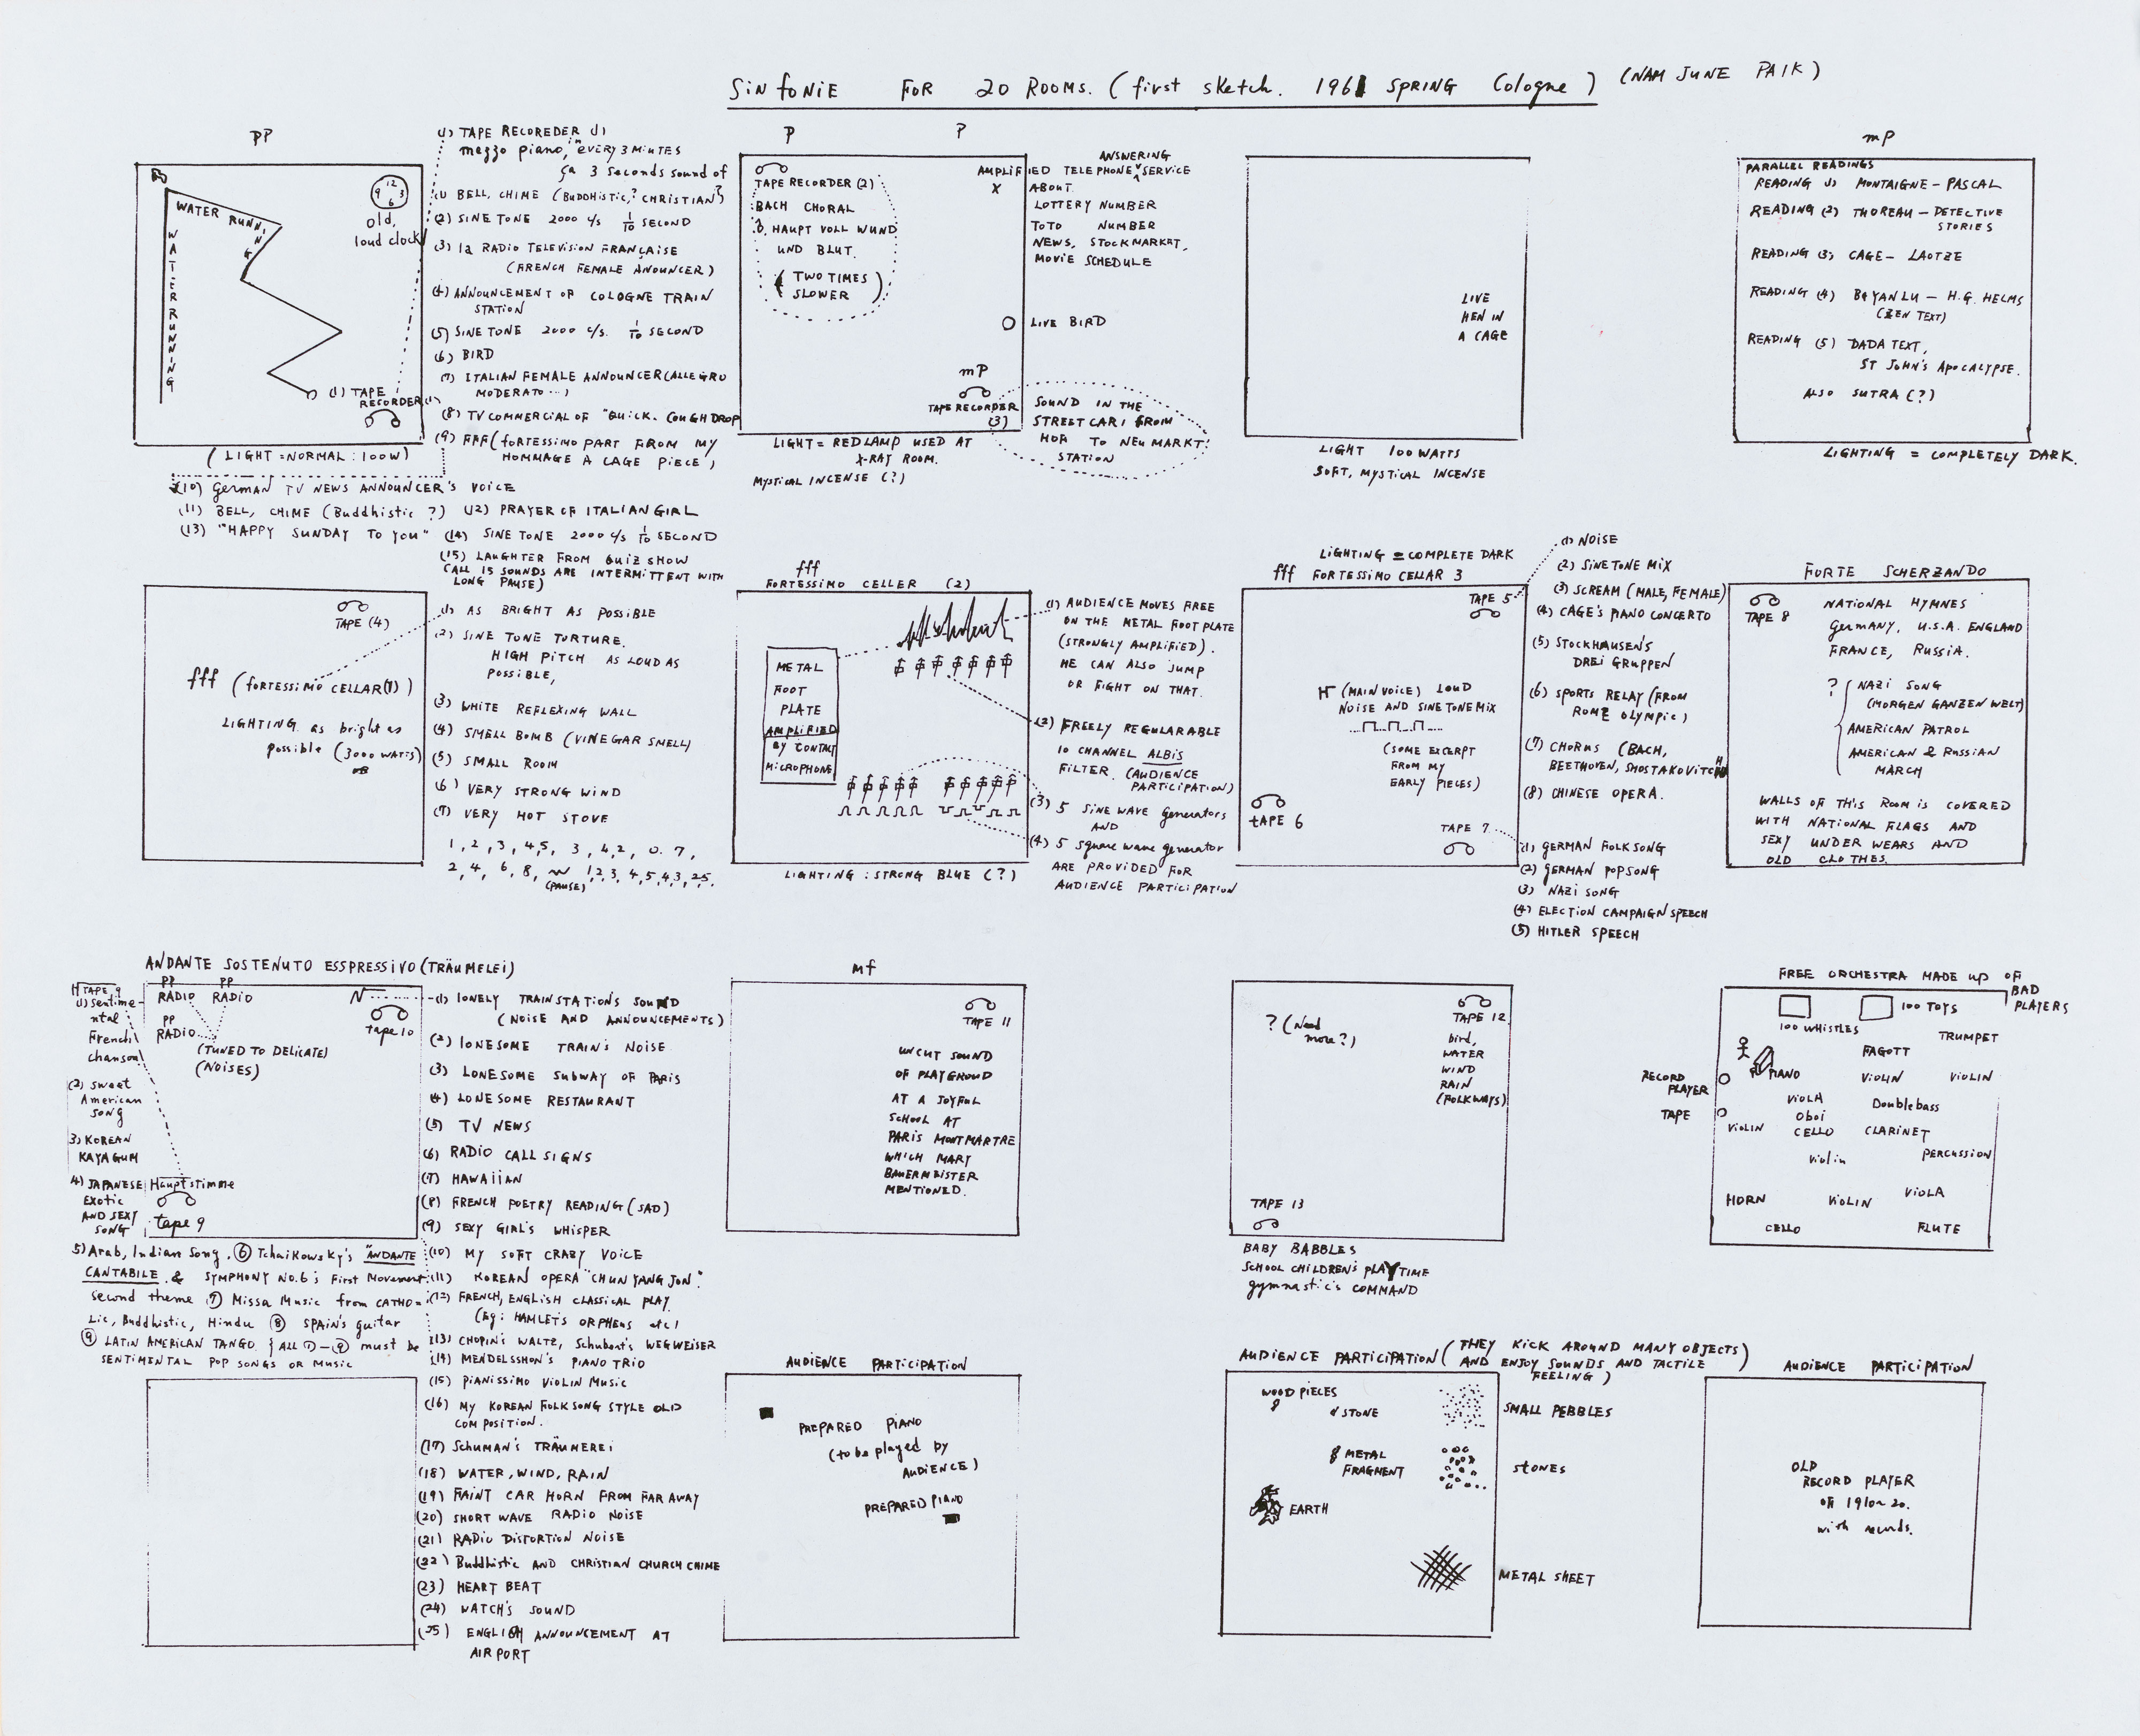 SINFONIE FOR 20 ROOMS. (first sketch. 1961 SPRING Cologne) (NAM JUNE PAIK)
PP
WATER RUNNING
WATER RUNNING
9 12 3 6
old,
loud clock
(1) TAPE
RECORDER (1)
(LIGHT = NORMAL : 100W)
(1) TAPE RECOREDER (1)
mezzo piano, "EVERY 3 MINUTES
ça 3 seconds sound of
(1) BELL, CHIME (BUDDHISTIC, ? CHRISTIAN)
(2) SINE TONE 2000 c/s 1/10 SECOND
(3) la RADIO TELEVISION FRANÇAISE
(FRENCH FEMALE ANOUNCER)
(4) ANNOUNCEMENT OF COLOGNE TRAIN
STATION
(5) SINE TONE 2000 c/s. 1/10 SECOND
(6) BIRD
(7) ITALIAN FEMALE ANNOUNCER (ALLEGRO
MODERATO...)
(8) TV COMMERCIAL OF "QUICK. COUGH DROP
(9) FFF (FORTESSIMO PART FROM MY
HOMMAGE A CAGE PIECE)
(10) German TV NEWS ANNOUNCER'S VOICE
(11) BELL, CHIME (Buddhistic ?) (12) PRAYER OF ITALIAN GIRL
(13) "HAPPY SUNDAY TO YOU" (14) SINE TONE 2000 c/s 1/10 SECOND
(15) LAUGHTER FROM QUIZ SHOW
(ALL 15 SOUNDS ARE INTERMITTENT WITH
LONG PAUSE)
P P
TAPE RECORDER (2)
BACH CHORAL
O. HAUPT VOLL WUND
UND BLUT.
(TWO TIMES
SLOWER)
ANSWERING
AMPLIFIED TELEPHONE SERVICE
X ABOUT.
LOTTERY NUMBER
TOTO NUMBER
NEWS, STOCKMARKET,
MOVIE SCHEDULE
LIVE BIRD
mP
TAPE RECORDER
(3)
SOUND IN THE
STREET CAR 1 FROM
HOF TO NEUMARKT!
STATION
LIGHT = RED LAMP USED AT
X-RAY ROOM.
MYSTICAL INCENSE (?)
LIVE
HEN IN
A CAGE
LIGHT 100 WATTS
SOFT, MYSTICAL INCENSE
mP
PARALLEL READINGS
READING (1) MONTAIGNE - PASCAL
READING (2) THOREAU - DETECTIVE
STORIES
READING (3) CAGE - LAOTZE
READING (4) BAYANLU - H.G. HELMS
(ZEN TEXT)
READING (5) DADA TEXT,
ST JOHN'S APOCALYPSE.
ALSO SUTRA (?)
LIGHTING = COMPLETELY DARK.
TAPE (4)
fff (FORTESSIMO CELLAR (1))
LIGHTING as bright as
possible (3000 WATTS)
(1) AS BRIGHT AS POSSIBLE
(2) SINE TONE TORTURE.
HIGH PITCH AS LOUD AS
POSSIBLE,
(3) WHITE REFLEXING WALL
(4) SMELL BOMB (VINEGAR SMELL)
(5) SMALL ROOM
(6) VERY STRONG WIND
(7) VERY HOT STOVE
1, 2, 3, 4, 5, 3, 4, 2, 0. 7,
2, 4, 6, 8, 1, 2, 3, 4, 5, 4, 3, 2, 5.
(PAUSE)
fff
FORTESSIMO CELLER (2)
METAL
FOOT
PLATE
AMPLIFIED
BY CONTACT
MICROPHONE
LIGHTING : STRONG BLUE (?)
(1) AUDIENCE MOVES FREE
ON THE METAL FOOT PLATE
(STRONGLY AMPLIFIED).
HE CAN ALSO JUMP
OR FIGHT ON THAT.
(2) FREELY REGULARABLE
10 CHANNEL ALBIS
FILTER. (AUDIENCE
PARTICIPATION)
(3) 5 SINE WAVE Generators
AND
(4) 5 square wave generator
ARE PROVIDED FOR
AUDIENCE PARTICIPATION
LIGHTING = COMPLETE DARK
fff FORTESSIMO CELLAR 3
TAPE 5
H (MAIN VOICE) LOUD
NOISE AND SINE TONE MIX
(SOME EXCERPT
FROM MY
EARLY PIECES)
TAPE 6
TAPE 7
(1) NOISE
(2) SINE TONE MIX
(3) SCREAM (MALE, FEMALE)
(4) CAGE'S PIANO CONCERTO
(5) STOCKHAUSEN'S
DREI GRUPPEN
(6) SPORTS RELAY (FROM
ROME OLYMPIC)
(7) CHORUS (BACH,
BEETHOVEN, SHOSTAKOVITCH
(8) CHINESE OPERA.
(1) GERMAN FOLKSONG
(2) GERMAN POPSONG
(3) NAZI SONG
(4) ELECTION CAMPAIGN SPEECH
(5) HITLER SPEECH
FORTE SCHERZANDO
TAPE 8
NATIONAL HYMNES
Germany, U.S.A. ENGLAND
FRANCE, RUSSIA.
? NAZI SONG
(MORGEN GANZEN WELT)
AMERICAN PATROL
AMERICAN & RUSSIAN
MARCH
WALLS OF THIS ROOM IS COVERED
WITH NATIONAL FLAGS AND
SEXY UNDER WEARS AND
OLD CLOTHES.
ANDANTE SOSTENUTO ESSPRESSIVO (TRÄUMELEI)
PP PP
RADIO RADIO
PP
RADIO
(TUNED TO DELICATE)
(NOISES)
N
tape 10
Hauptstimme
tape 9
H TAPE 9
(1) Sentime-
ntal
French
chanson
(2) sweet
American
song
3) KOREAN
KAYAGUM
4) JAPANESE
Exotic
AND SEXY
SONG
5) Arab, Indian Song. ⑥ Tchaikowsky's "ANDANTE
CANTABILE & SYMPHONY NO.6's First Movement
second theme ⑦ Missa Music from CATHO=
Lic, Buddhistic, Hindu ⑧ SPAIN'S guitar
⑨ LATIN AMERICAN TANGO. {ALL ①-⑨ must be
SENTIMENTAL POP SONGS OR MUSIC
(1) LONELY TRAINSTATION'S SOUND
(NOISE AND ANNOUNCEMENTS)
(2) LONESOME TRAIN'S NOISE
(3) LONESOME SUBWAY OF PARIS
(4) LONESOME RESTAURANT
(5) TV NEWS
(6) RADIO CALL SIGNS
(7) HAWAIIAN
(8) FRENCH POETRY READING (SAD)
(9) SEXY GIRL'S WHISPER
(10) MY SOFT CRAZY VOICE
(11) KOREAN OPERA "CHUN YANG JON."
(12) FRENCH, ENGLISH CLASSICAL PLAY.
(Eg: HAMLET'S ORPHEUS etc)
(13) CHOPIN'S WALTZ, Schubert's WEGWEISER
(14) MENDELSSHON'S PIANO TRIO
(15) PIANISSIMO VIOLIN MUSIC
(16) MY KOREAN FOLKSONG STYLE OLD
COMPOSITION.
(17) SCHUMAN'S TRÄUNEREI
(18) WATER, WIND, RAIN
(19) FAINT CAR HORN FROM FAR AWAY
(20) SHORT WAVE RADIO NOISE
(21) RADIO DISTORTION NOISE
(22) Buddhistic AND CHRISTIAN CHURCH CHIME
(23) HEART BEAT
(24) WATCH'S SOUND
(25) ENGLISH ANNOUNCEMENT AT
AIRPORT
mf
TAPE 11
UNCUT SOUND
OF PLAYGROUD
AT A JOYFUL
SCHOOL AT
PARIS MONTMARTRE
WHICH MARY
BAUERMEISTER
MENTIONED.
? (Need
more?)
TAPE 12
bird,
WATER
WIND
RAIN
(FOLKWAYS)
TAPE 13
BABY BABBLES
SCHOOL CHILDREN'S PLAYTIME
gymnastic's COMMAND
FREE ORCHESTRA MADE UP OF
BAD
PLAYERS
100 TOYS
100 WHISTLES
TRUMPET
FAGOTT
PIANO
RECORD
PLAYER
VIOLIN VIOLIN
VIOLA
Doublebass
TAPE
Oboi
VIOLIN
CELLO CLARINET
Violin
PERCUSSION
HORN VIOLIN VIOLA
CELLO FLUTE
AUDIENCE PARTICIPATION
PREPARED PIANO
(to be played by
AUDIENCE)
PREPARED PIANO
AUDIENCE PARTICIPATION (THEY KICK AROUND MANY OBJECTS
AND ENJOY SOUNDS AND TACTILE
FEELING)
WOOD PIECES
STONE
SMALL PEBBLES
METAL
FRAGMENT
STONES
EARTH
METAL SHEET
AUDIENCE PARTICIPATION
OLD
RECORD PLAYER
of 1910~20.
with records.